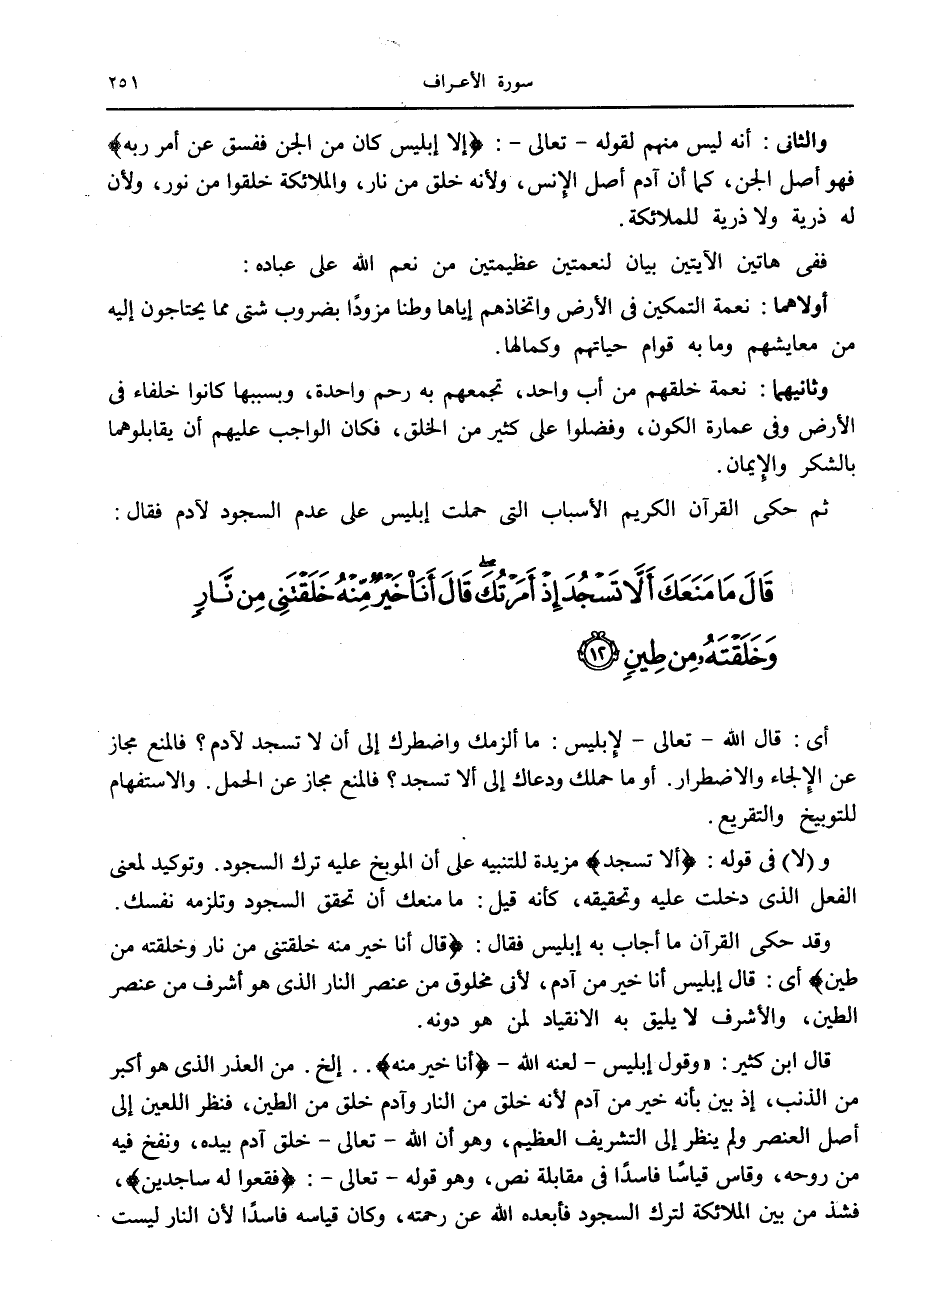 سورة الأعراف ٢٥١
والثانى : أنه ليس منهم لقوله - تعالى - : ﴿إلا إبليس كان من الجن ففسق عن أمر ربه﴾
فهو أصل الجن، كما أن آدم أصل الإنس، ولأنه خلق من نار، والملائكة خلقوا من نور، ولأن
له ذرية ولا ذرية للملائكة.
ففى هاتين الآيتين بيان لنعمتين عظيمتين من نعم الله على عباده :
أولاهما : نعمة التمكين فى الأرض واتخاذهم إياها وطنا مزودًا بضروب شتى مما يحتاجون إليه
من معايشهم وما به قوام حياتهم وكمالها.
وثانيهما : نعمة خلقهم من أب واحد، تجمعهم به رحم واحدة، وبسببها كانوا خلفاء فى
الأرض وفى عمارة الكون، وفضلوا على كثير من الخلق، فكان الواجب عليهم أن يقابلوهما
بالشكر والإيمان.
ثم حكى القرآن الكريم الأسباب التى حملت إبليس على عدم السجود لآدم فقال :
قَالَ مَا مَنَعَكَ أَلَّا تَسْجُدَ إِذْ أَمَرْتُكَ ۖ قَالَ أَنَا۠ خَيْرٌ مِّنْهُ خَلَقْتَنِي مِن نَّارٍ
وَخَلَقْتَهُۥ مِن طِينٍ ١٢
أى : قال الله - تعالى - لإبليس : ما ألزمك واضطرك إلى أن لا تسجد لآدم؟ فالمنع مجاز
عن الإلجاء والاضطرار. أو ما حملك ودعاك إلى ألا تسجد؟ فالمنع مجاز عن الحمل. والاستفهام
للتوبيخ والتقريع.
و (لا) فى قوله : ﴿ألا تسجد﴾ مزيدة للتنبيه على أن الموبخ عليه ترك السجود. وتوكيد لمعنى
الفعل الذى دخلت عليه وتحقيقه، كأنه قيل : ما منعك أن تحقق السجود وتلزمه نفسك.
وقد حكى القرآن ما أجاب به إبليس فقال : ﴿قال أنا خير منه خلقتنى من نار وخلقته من
طين﴾ أى : قال إبليس أنا خير من آدم، لأنى مخلوق من عنصر النار الذى هو أشرف من عنصر
الطين، والأشرف لا يليق به الانقياد لمن هو دونه.
قال ابن كثير : «وقول إبليس - لعنه الله - ﴿أنا خير منه﴾.. إلخ. من العذر الذى هو أكبر
من الذنب، إذ بين بأنه خير من آدم لأنه خلق من النار وآدم خلق من الطين، فنظر اللعين إلى
أصل العنصر ولم ينظر إلى التشريف العظيم، وهو أن الله - تعالى - خلق آدم بيده، ونفخ فيه
من روحه، وقاس قياسًا فاسدًا فى مقابلة نص، وهو قوله - تعالى - : ﴿فقعوا له ساجدين﴾،
فشذ من بين الملائكة لترك السجود فأبعده الله عن رحمته، وكان قياسه فاسدًا لأن النار ليست